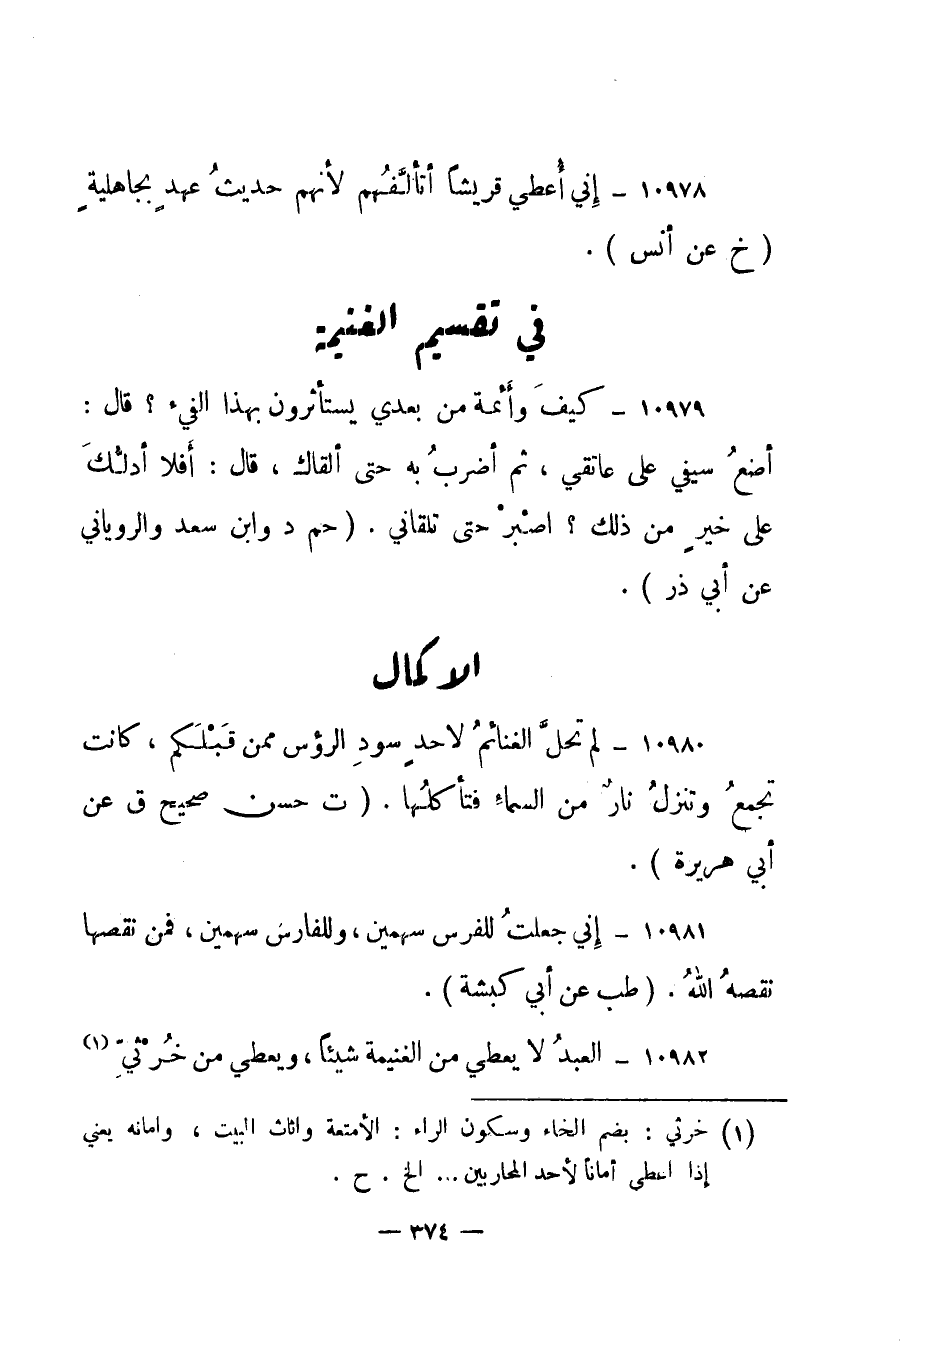 ١٠٩٧٨ ـ إني أُعطي قريشاً أتألَّفُهم لأنهم حديثُ عهدٍ بجاهليةٍ
( خ عن أنس ) .
في تقسيم الغنيمة
١٠٩٧٩ ـ كيفَ وأَئمة من بعدي يستأثرون بهذا الفيء ؟ قال :
أضعُ سيفي على عاتقي ، ثم أضربُ به حتى ألقاك ، قال : أَفلا أدلُّكَ
على خيرٍ من ذلك ؟ اصْبرْ حتى تلقاني . ( حم د وابن سعد والروياني
عن أبي ذر ) .
الاكمال
١٠٩٨٠ ـ لم تحلَّ الغنائمُ لاحدٍ سودِ الرؤس ممن قَبْلَكم ، كانت
تجمعُ وتنزلُ نارٌ من السماءِ فتأكلُها . ( ت حسن صحيح ق عن
أبي هريرة ) .
١٠٩٨١ ـ إني جعلتُ للفرس سهمين ، وللفارس سهمين ، فمن نقصها
نقصهُ اللهُ . ( طب عن أبي كبشة ) .
١٠٩٨٢ ـ العبدُ لا يعطي من الغنيمة شيئاً ، ويعطي من خُرْثيِّ (١)
(١) خرثي : بضم الخاء وسكون الراء : الأمتعة واثاث البيت ، وامانه يعني
إذا اعطى أماناً لأحد المحاربين ... الخ . ح .
— ٣٧٤ —